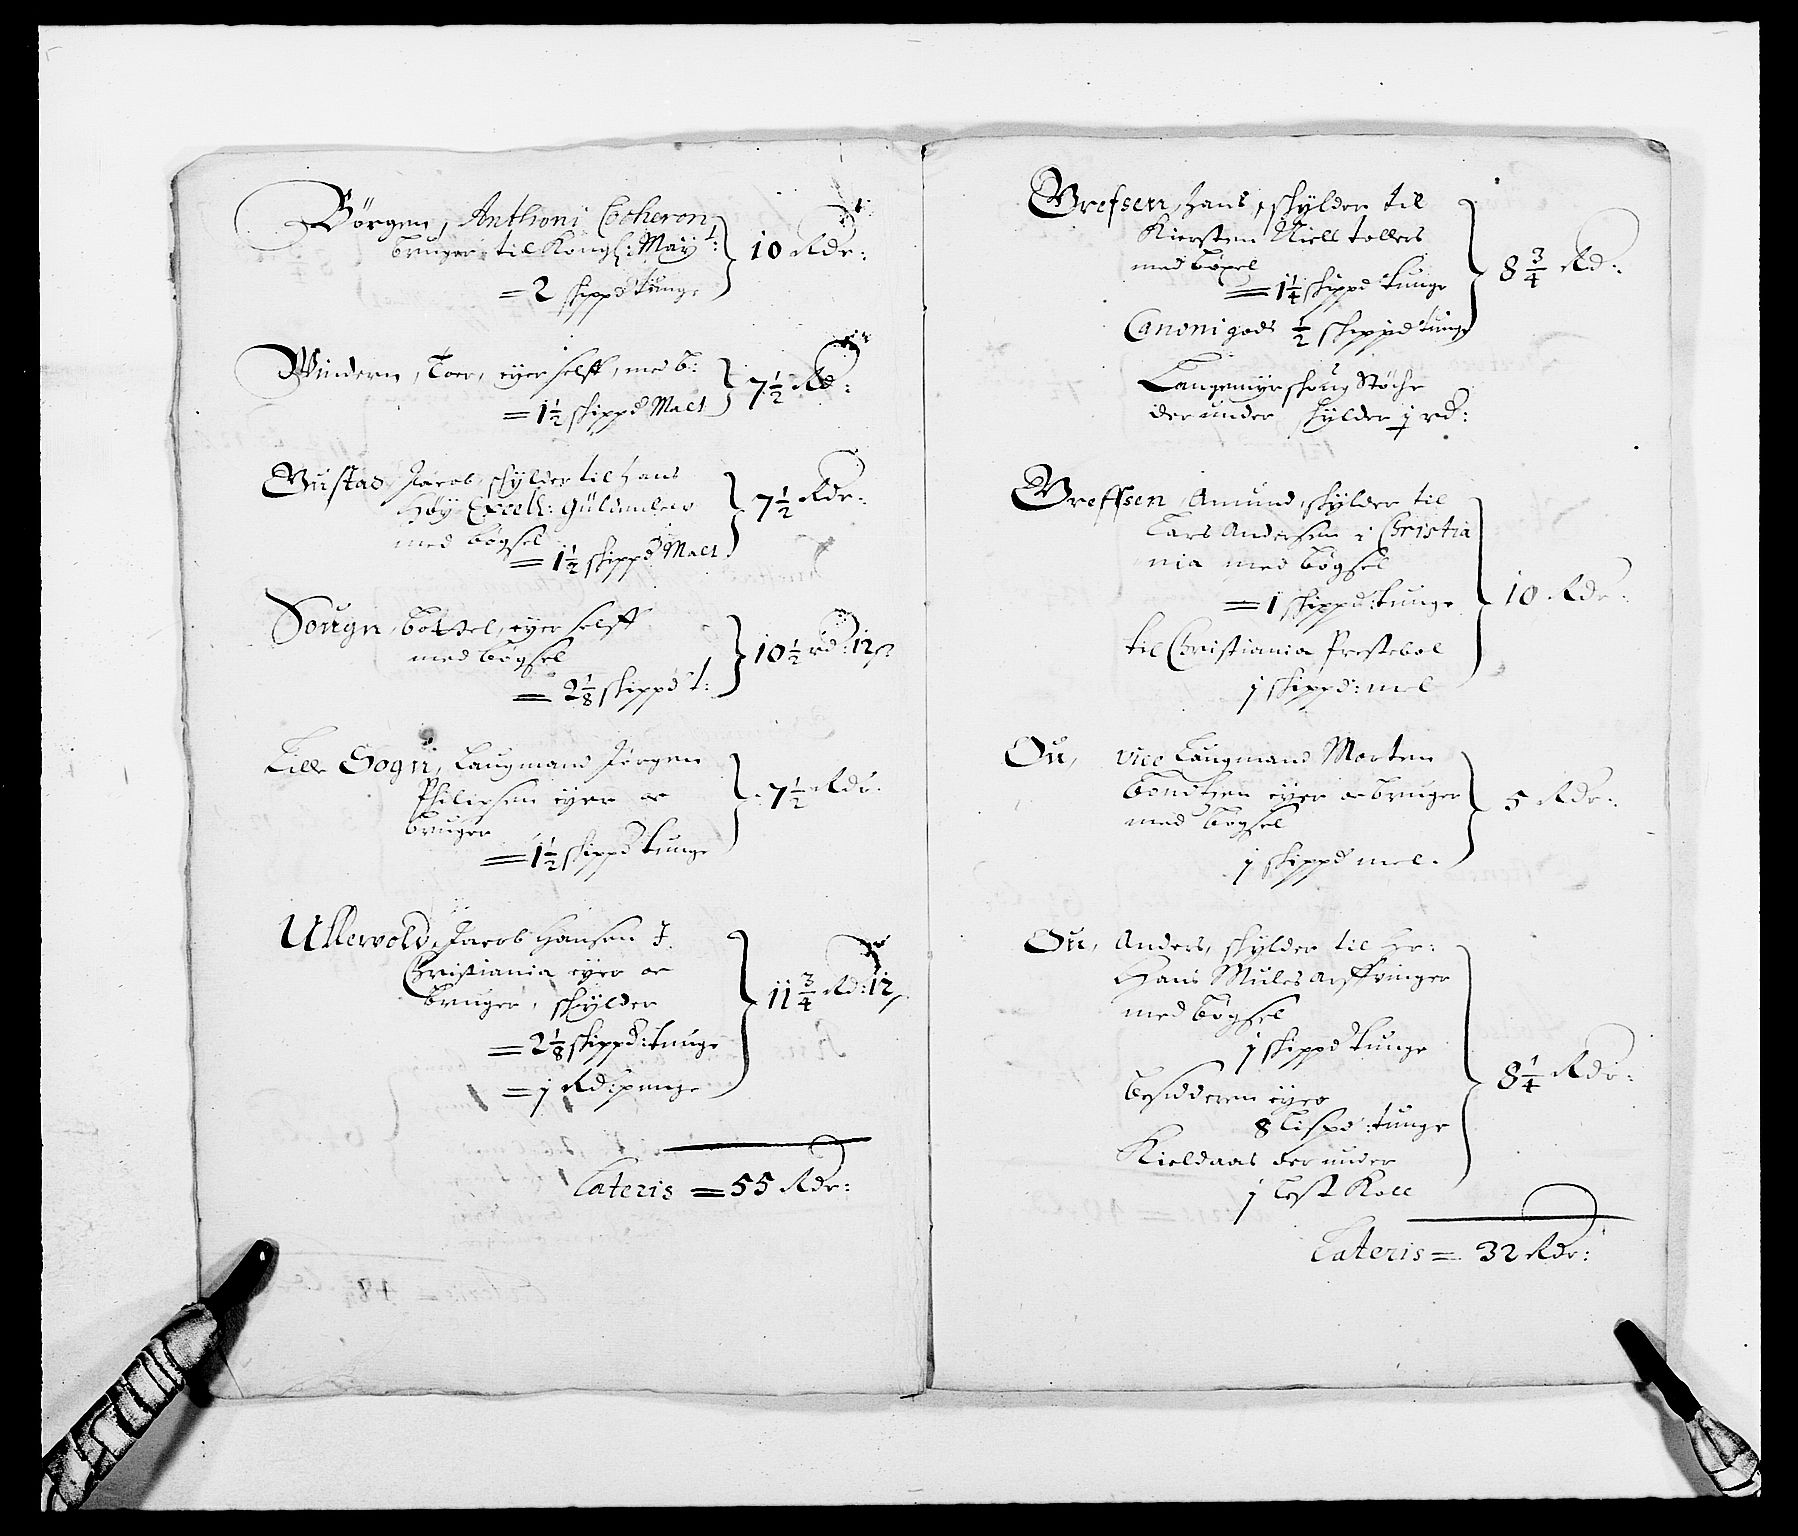 Børgen, Anthoni Cocheron
bruger til Kongl: May:t
= 2 skippd tunge
10 Rdr:
Windern, Toer, eyer selff, med b:
= 1 1/2 skippd Malt
7 1/2 Rd:
Gustad, Jacob, skylder til hans
Høy Excell: Güldenlew
med bøgsel
= 1 1/2 skippd Malt
7 1/2 Rdr:
Sougn, Bottel, eyer selff
med bøgsel
= 2 1/8 skippd t:
10 1/2 rd: 12 s
Lille Sogn, Laugmand Jørgen
Philipsen eyer oc
bruger
= 1 1/2 skippd tunge
7 1/2 Rdr:
Ullervold, Jacob Hansen I
Christiania eyer oc
bruger, skylder
= 2 1/8 skippd: tunge
= j Rd: penge
11 3/4 Rd: 12 s
Lateris = 55 Rdr:
Grefsen, Hans, skylder til
Kiersten Niell tollers
med bøxel
= 1 1/4 skippd tunge
Canonigods 1/2 skippd tunge
8 3/4 Rd:
Langemyrskoug Støche
der under skylder j rd:
Greffsen, Amund, skylder til
Lars Andersen i Christia
nia med bøgsel
= 1 skippd: tunge
til Christiania Prestebol
j skippd: mel
10 Rdr:
Ou, vice Laugmand Morten
bondtzen eyer oc bruger
med bøgsel
j skippd mel.
5 Rdr:
Ou, Anders, skylder til Hr:
Hans Mules Arffvinger
med bøgsel
j skippd tunge
besidderen eyer
8 Lispd: tunge
Kieldaas der under
j Lest Koll
8 1/4 Rdr:
Lateris = 32 Rdr: